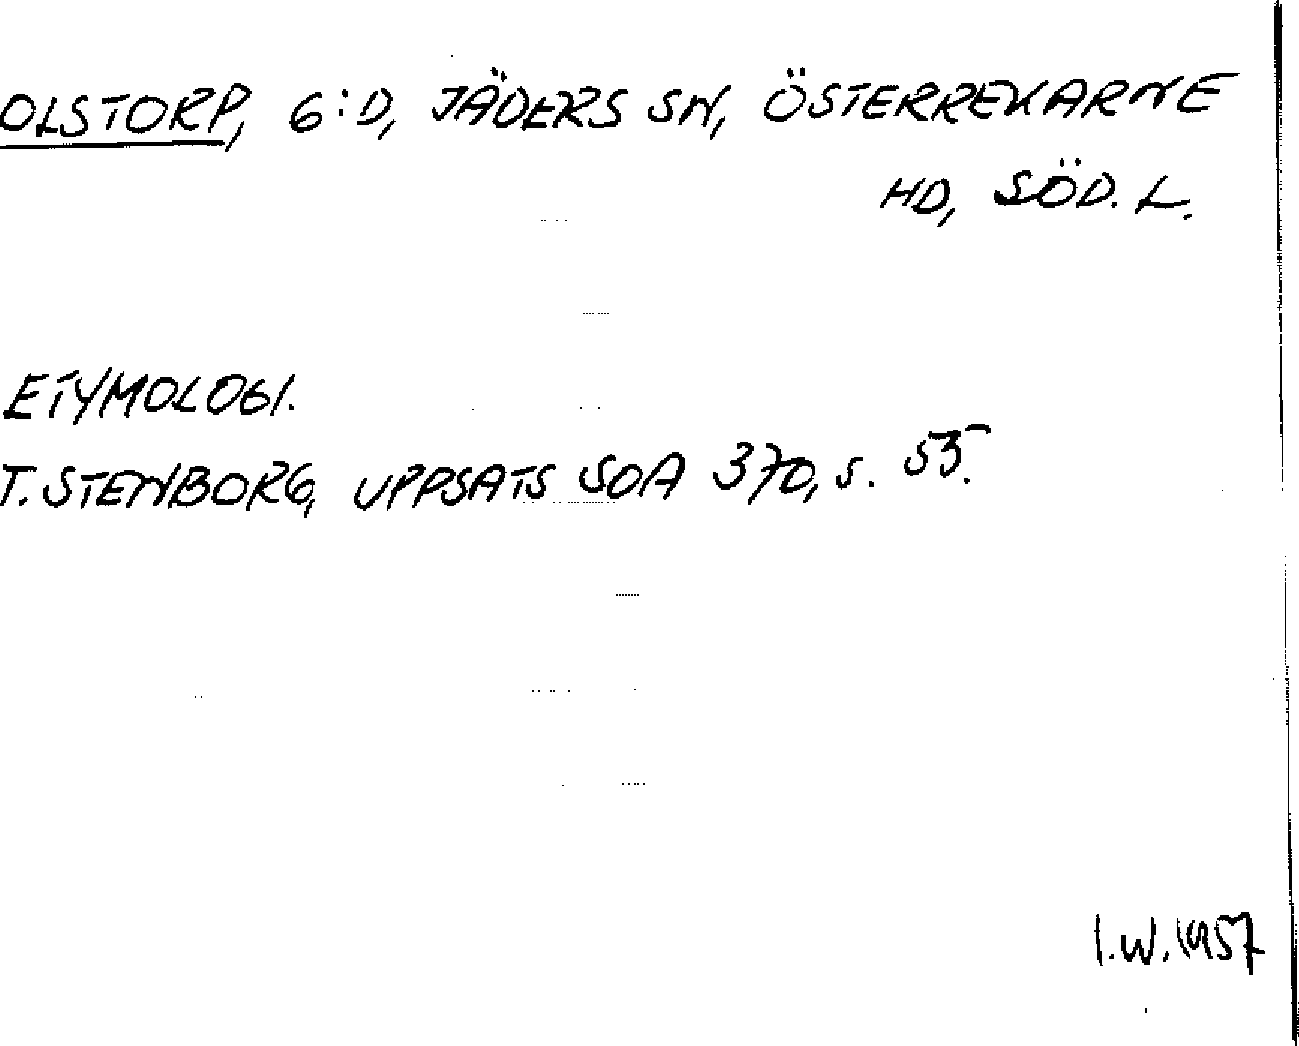 OLSTORP, G:D, JÄDERS SN, ÖSTERREKARNE
HD, SÖD. L.
ETYMOLOGI.
T. STENBORG, UPPSATS SOA 370, S. 53.
I.W. 1957